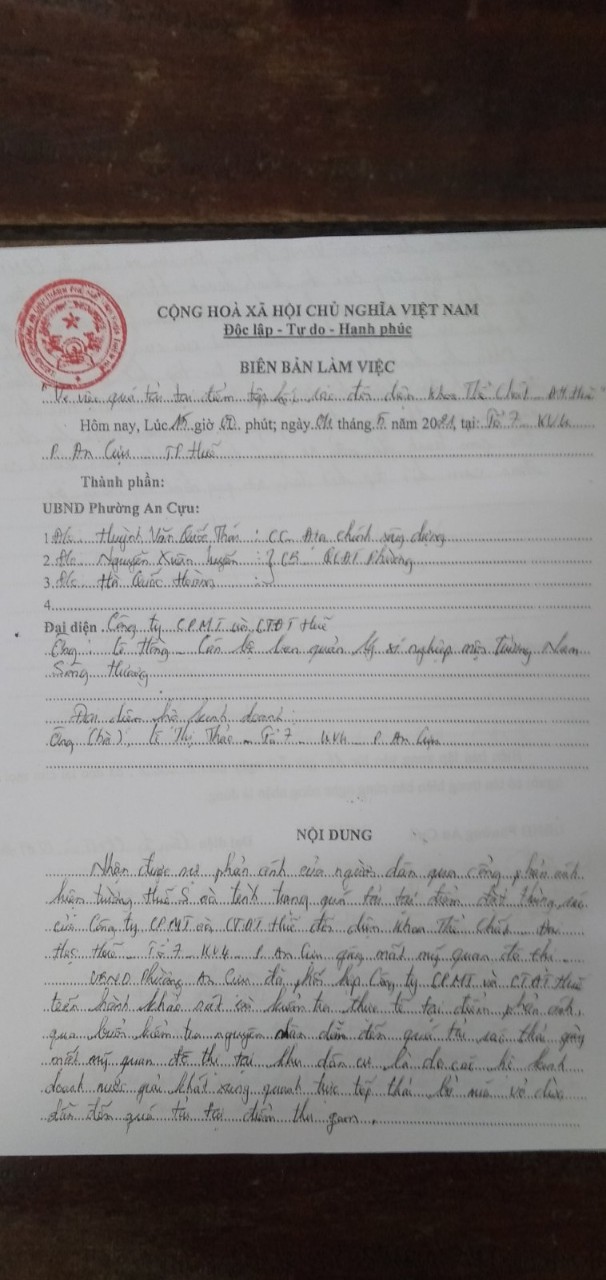 CỘNG HOÀ XÃ HỘI CHỦ NGHĨA VIỆT NAM
Độc lập - Tự do - Hạnh phúc
BIÊN BẢN LÀM VIỆC
Về việc quá tải tại điểm tập kết rác đối diện khoa Thể Chất ĐH Huế
Hôm nay, Lúc giờ phút; ngày tháng năm 2021, tại: Tổ 7 KV4
P. An Cựu TP Huế
Thành phần:
UBND Phường An Cựu:
1. Đ/c Huỳnh Văn Quốc Thái : CC Địa chính xây dựng
2. Đ/c Nguyễn Xuân : CB QLĐT Phường
3. Đ/c Hồ Quốc Hoàng
4.
Đại diện Công ty CPMT và CTĐT Huế
Ông : Lê Hồng Cán bộ ban quản lý xí nghiệp môi trường Nam
Sông Hương
Đại diện hộ kinh doanh:
Ông (bà) Lê Thị Thảo - Tổ 7 KV4 P. An Cựu
NỘI DUNG
Nhận được sự phản ánh của người dân qua cổng phản ánh
hiện trường Huế S về tình trạng quá tải tại điểm đặt thùng rác
của Công ty CPMT và CTĐT Huế đối diện khoa Thể Chất Đại
Học Huế Tổ 7 KV4 P. An Cựu gây mất mỹ quan đô thị.
UBND Phường An Cựu đã phối hợp Công ty CPMT và CTĐT Huế
tiến hành khảo sát và kiểm tra thực tế tại điểm phản ánh,
qua buổi kiểm tra nguyên nhân dẫn đến quá tải rác thải gây
mất mỹ quan đô thị tại khu dân cư là do các hộ kinh
doanh nước giải khát xung quanh trực tiếp thải bỏ vỏ dừa
dẫn đến quá tải tại điểm thu gom.